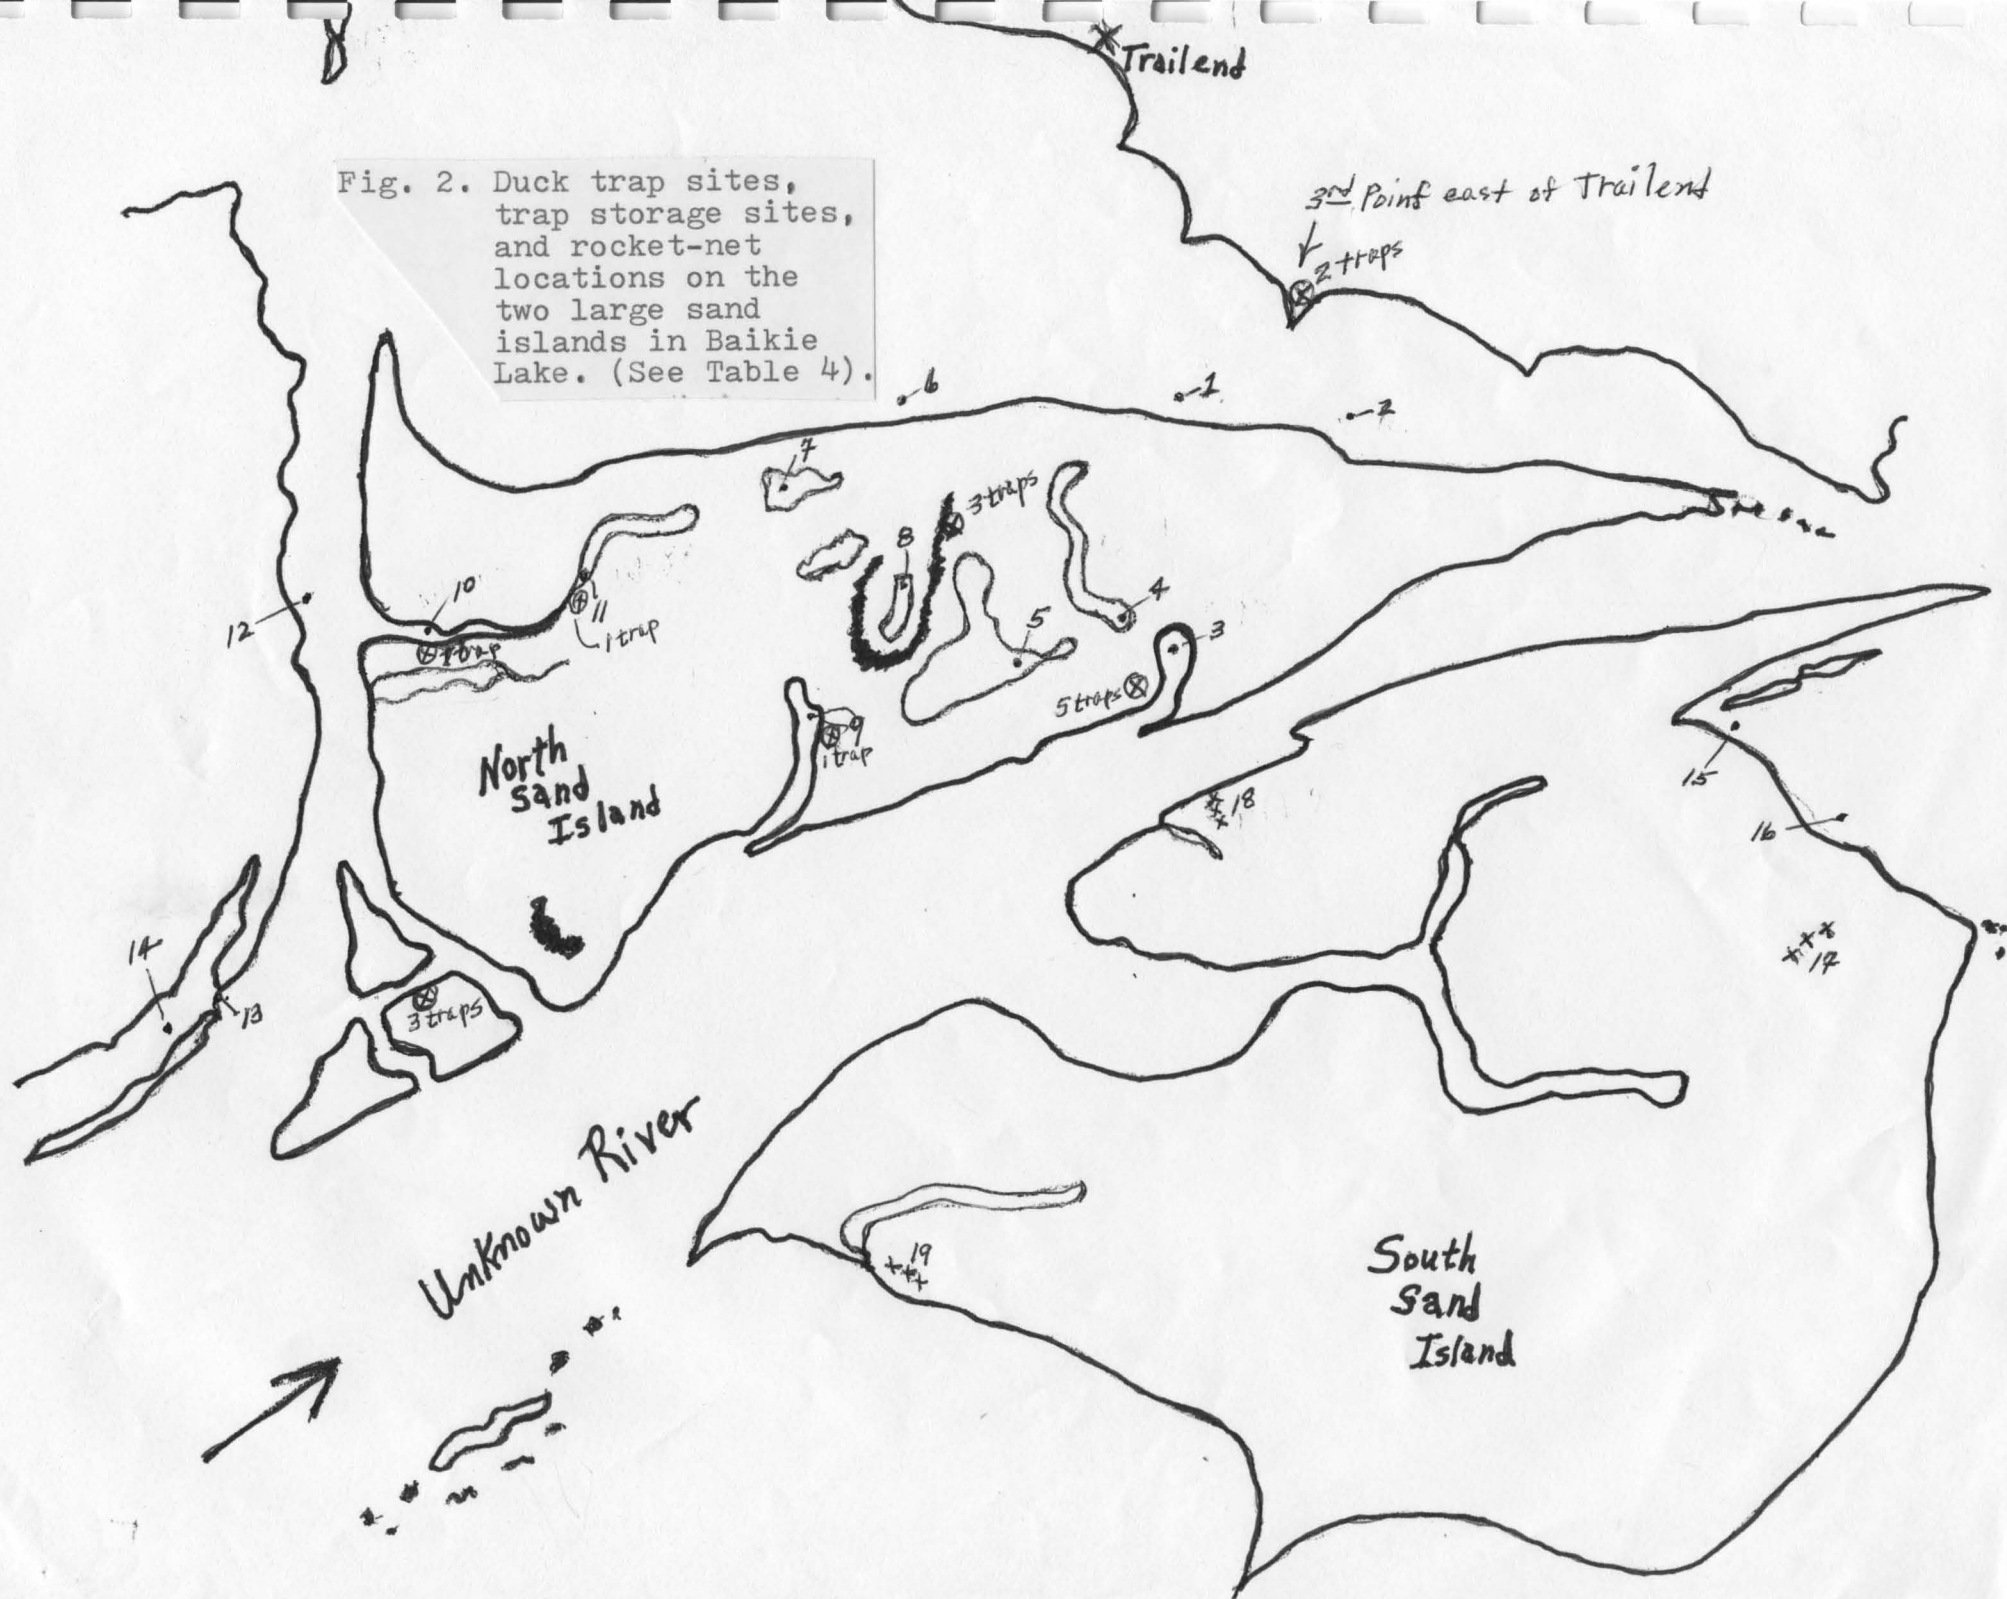 Trailend
Fig. 2. Duck trap sites,
trap storage sites,
and rocket-net
locations on the
two large sand
islands in Baikie
Lake. (See Table 4).
3rd Point east of Trailend
2 traps
6
1
2
7
3 traps
8
10
11
1 trap
1 trap
12
4
5
3
5 traps
9
1 trap
North
Sand
Island
15
16
18
17
14
13
3 traps
Unknown River
19
South
Sand
Island